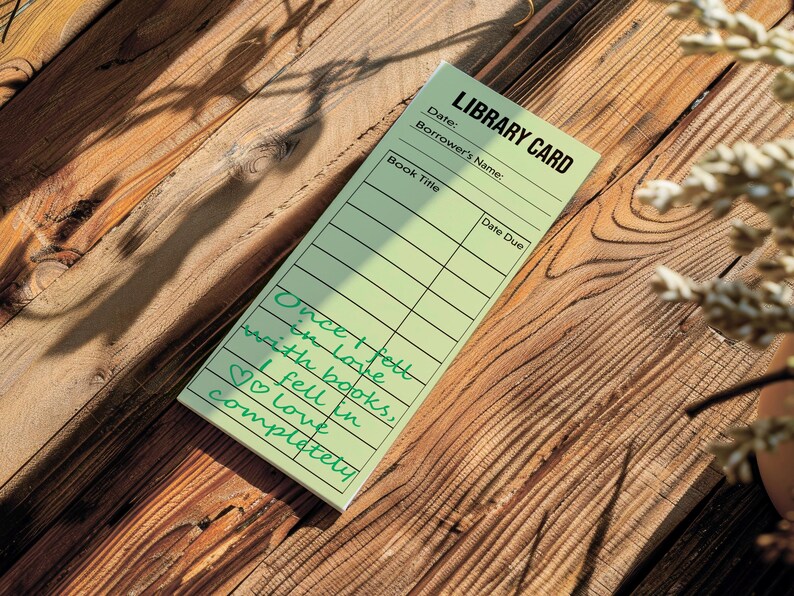 LIBRARY CARD
Date:
Borrower's Name:
Book Title
Date Due
Once I fell
in love
with books,
I fell in
love
completely